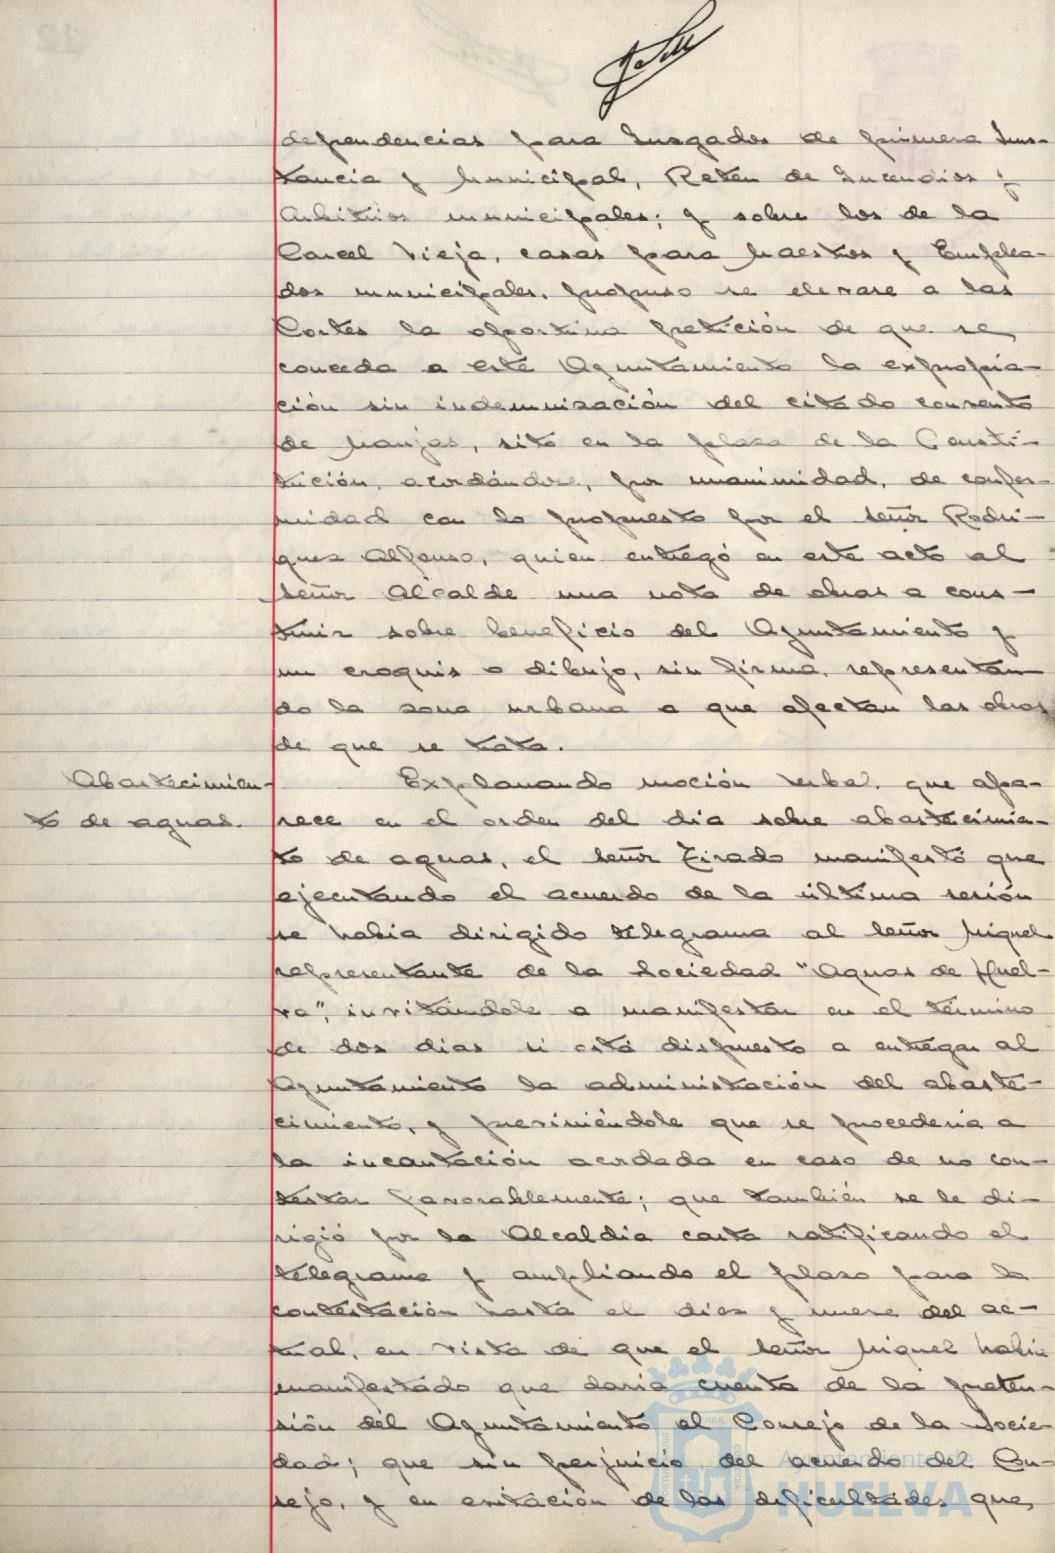 dependencias para Jusgados de primera Ins-
tancia y Municipal, Reten de Incendios y
Arbitrios municipales; y sobre los de la
Carcel Vieja, casas para Maestros y Emplea-
dos municipales, propuso se elevase a las
Cortes la oportuna petición de que se
conceda a este Ayuntamiento la expropia-
ción sin indemnisación del citado convento
de Monjas, sito en la plasa de la Consti-
tución, acordándose, por unanimidad, de confor-
midad con lo propuesto por el señor Rodri-
gues Alfonso, quien entregó en este acto al
señor Alcalde una nota de obras a cons-
truir sobre beneficio del Ayuntamiento y
un croquis o dibujo, sin firma, representan-
do la zona urbana a que afectan las obras
de que se trata.
Abastecimien-
to de aguas.
Explanando moción verbal, que apa-
rece en el orden del dia sobre abastecimien-
to de aguas, el señor Tirado manifestó que
ejecutando el acuerdo de la última sesión
se habia dirigido telegrama al señor Miquel
representante de la Sociedad "Aguas de Huel-
va", invitándole a manifestar en el término
de dos dias si está dispuesto a entregar al
Ayuntamiento la administración del abaste-
cimiento, y previniéndole que se procederia a
la incautación acordada en caso de no con-
testar favorablemente; que también se le di-
rigió por la Alcaldia carta ratificando el
telegrama y ampliando el plaso para la
contestación hasta el dies y nueve del ac-
tual, en vista de que el señor Miquel habia
manifestado que daria cuenta de la preten-
sión del Ayuntamiento al Consejo de la Socie-
dad; que sin perjuicio del acuerdo del Con-
sejo, y en evitación de las dificultades que,
Ayuntamiento de
HUELVA